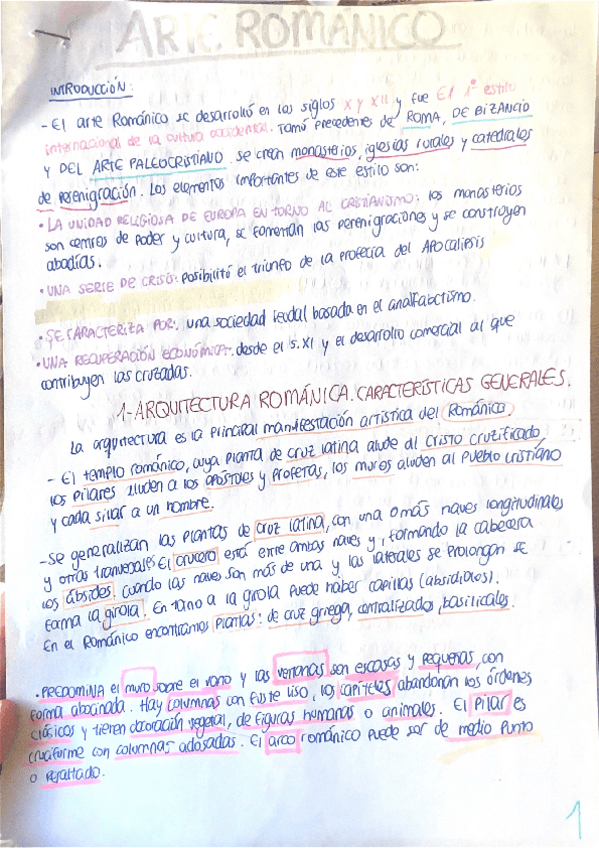 ARTE ROMÁNICO
INTRODUCCIÓN:
- El arte Románico se desarrolló en los siglos X y XII y fue El 1º estilo
internacional de la cultura occidental. Tomó precedentes de ROMA, DE BIZANCIO
Y DEL ARTE PALEOCRISTIANO. Se crean monasterios, iglesias rurales y catedrales
de perenigración. Los elementos importantes de este estilo son:
• LA UNIDAD RELIGIOSA DE EUROPA EN TORNO AL CRISTIANISMO: los monasterios
son centros de poder y cultura, se fomentan las perenigraciones y se construyen
abadías.
• UNA SERIE DE CRISIS: posibilitó el triunfo de la profecía del Apocalipsis
• SE CARACTERIZA POR: una sociedad feudal basada en el analfabetismo.
• UNA RECUPERACIÓN ECONÓMICA: desde el s. XI y el desarrollo comercial al que
contribuyen las cruzadas.
1- ARQUITECTURA ROMÁNICA. CARACTERÍSTICAS GENERALES.
La arquitectura es la principal manifestación artística del Románico
- El templo románico, cuya planta de cruz latina alude al Cristo crucificado,
los pilares aluden a los apóstoles y profetas, los muros aluden al pueblo cristiano
y cada sillar a un hombre.
- Se generalizan las plantas de cruz latina, con una o más naves longitudinales
y otras tranversales El crucero está entre ambas naves y, formando la cabecera
los ábsides. Cuando las naves son más de una y las laterales se prolongan se
forma la girola. En torno a la girola puede haber capillas (absidiolos).
En el Románico encontramos plantas: de cruz griega, centralizadas, basilicales.
• PREDOMINA el muro sobre el vano y las ventanas son escasas y pequeñas, con
forma abocinada. Hay columnas con fuste liso, los capiteles abandonan los órdenes
clásicos y tienen decoración vegetal, de figuras humanas o animales. El Pilar es
cruciforme con columnas adosadas. El arco románico puede ser de medio punto
o peraltado.
1